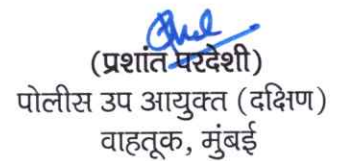 (प्रशांत परदेशी)
पोलीस उप आयुक्त (दक्षिण)
वाहतूक, मुंबई